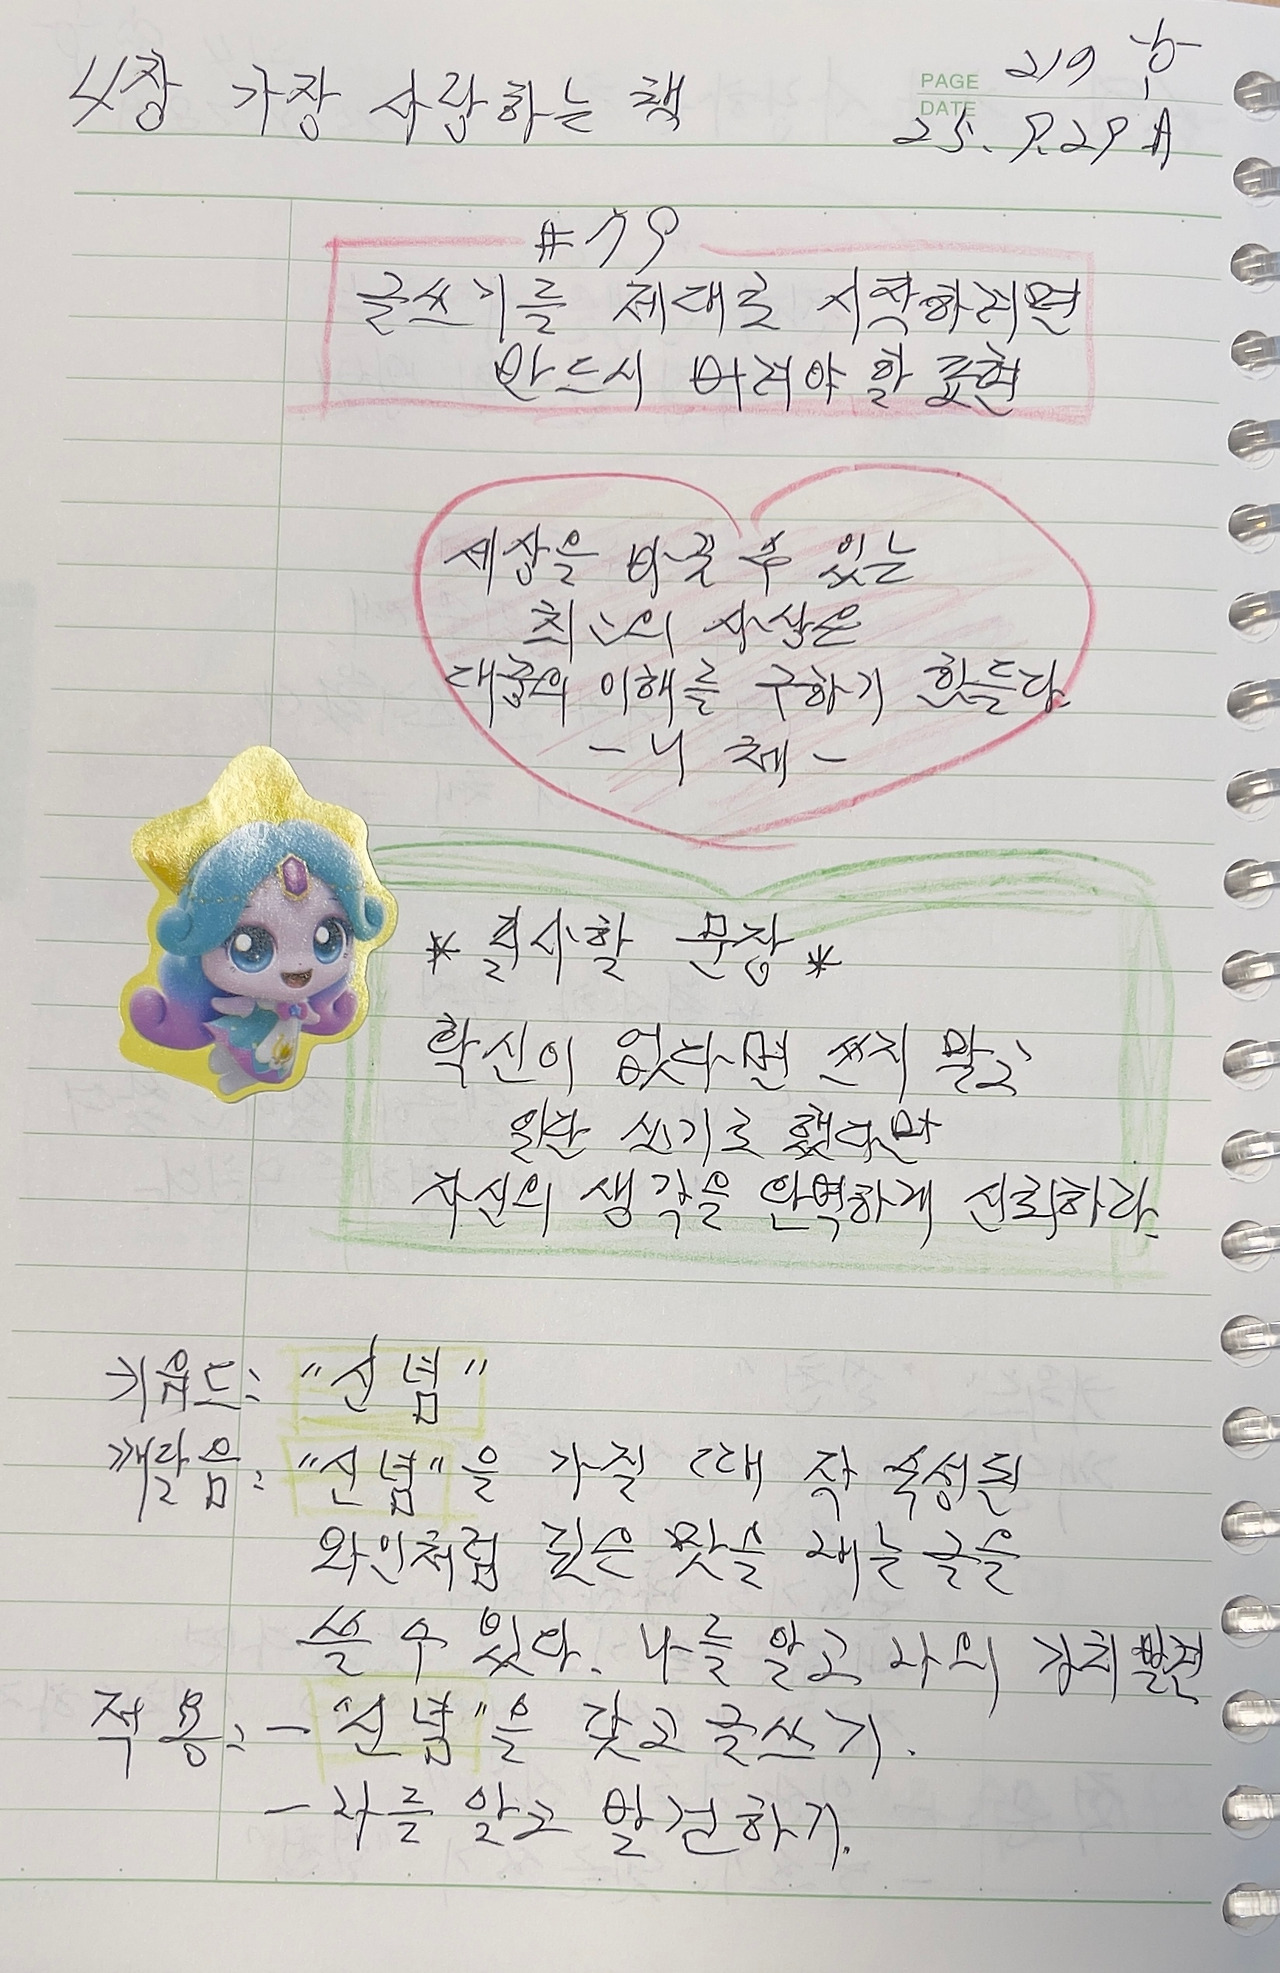 4장 가장 사랑하는 책
PAGE 219 쑥
DATE 25. 9. 29 月
#79
글쓰기를 제대로 시작하려면
반드시 버려야 할 표현
세상을 바꿀 수 있는
최고의 사상은
대중의 이해를 구하기 힘들다.
- 니체 -
* 필사할 문장 *
확신이 없다면 쓰지 말고
일단 쓰기로 했다면
자신의 생각을 완벽하게 신뢰하라.
키워드: "신념"
깨달음: "신념"을 가질 때 잘 숙성된
와인처럼 깊은 맛을 내는 글을
쓸 수 있다. 나를 알고 나의 강점 발견
적용: - "신념"을 갖고 글쓰기.
- 나를 알고 발견하기.